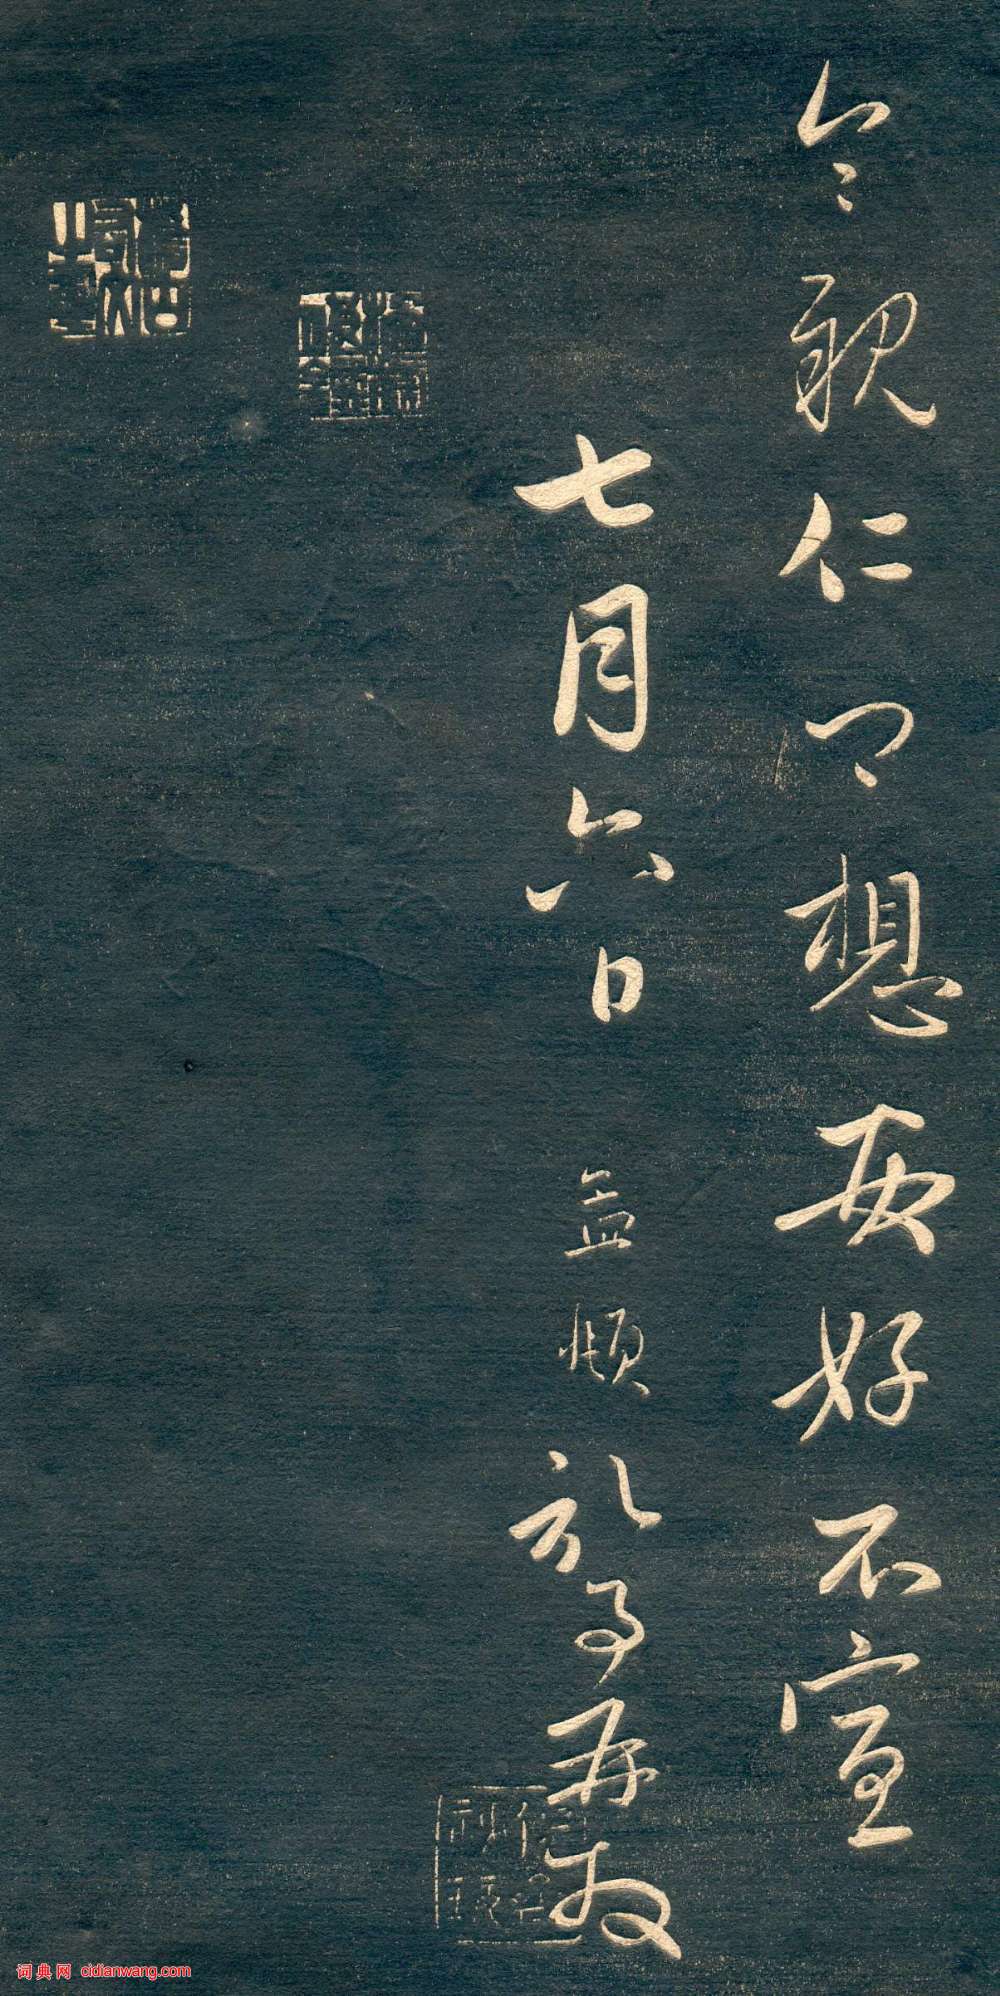 令親仁卿想安好不宣
七月六日 孟頫 於等再拜
词典网 cidianwang.com